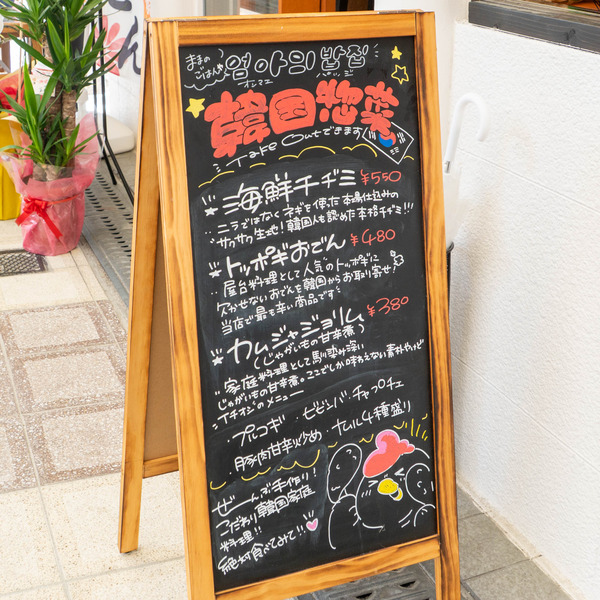 ままの
ごはんや
엄마의 밥집
オンマエ パッジ
韓国惣菜
Take Outできます
★海鮮チヂミ ¥550
ニラではなくネギを使った本場仕込みの
サクサク生地!韓国人も認めた本格チヂミ!!!
★トッポギおでん ¥480
屋台料理として人気のトッポギに
欠かせないおでんを韓国からお取り寄せ♪
当店で最も辛い商品です
★カムジャジョリム ¥380
(じゃがいもの甘辛煮)
家庭料理として馴染み深い
じゃがいもの甘辛煮。ここでしか味わえない素朴やけど
イチオシのメニュー
・プルコギ ・ビビンバ・チャプチェ
・豚肉甘辛炒め ・ナムル4種盛り
ぜーんぶ手作り
こだわり韓国家庭
料理!!
絶対食べてみて!!